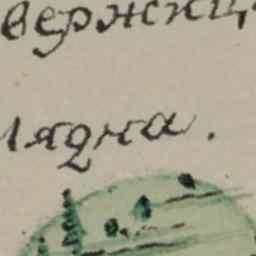 вержиц
лядна.